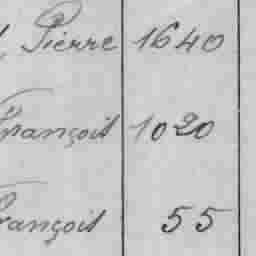 Pierre 1640
François 1020
François 55